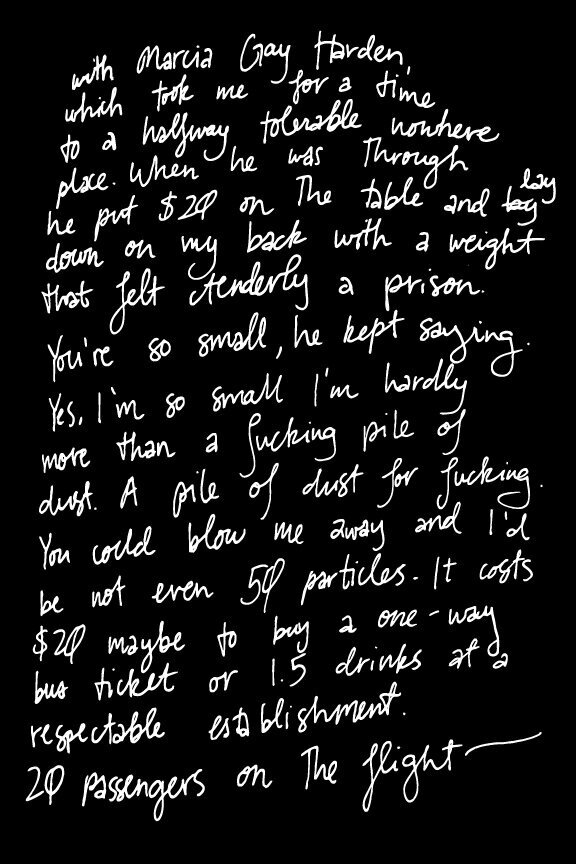 with Marcia Gay Harden,
which took me for a time
to a halfway tolerable nowhere
place. When he was Through
he put $20 on The table and lay
down on my back with a weight
that felt tenderly a prison.
You're so small, he kept saying.
Yes, I'm so small I'm hardly
more than a fucking pile of
dust. A pile of dust for fucking.
You could blow me away and I'd
be not even 50 particles. It costs
$20 maybe to buy a one-way
bus ticket or 1.5 drinks at a
respectable establishment.
20 passengers on The flight—